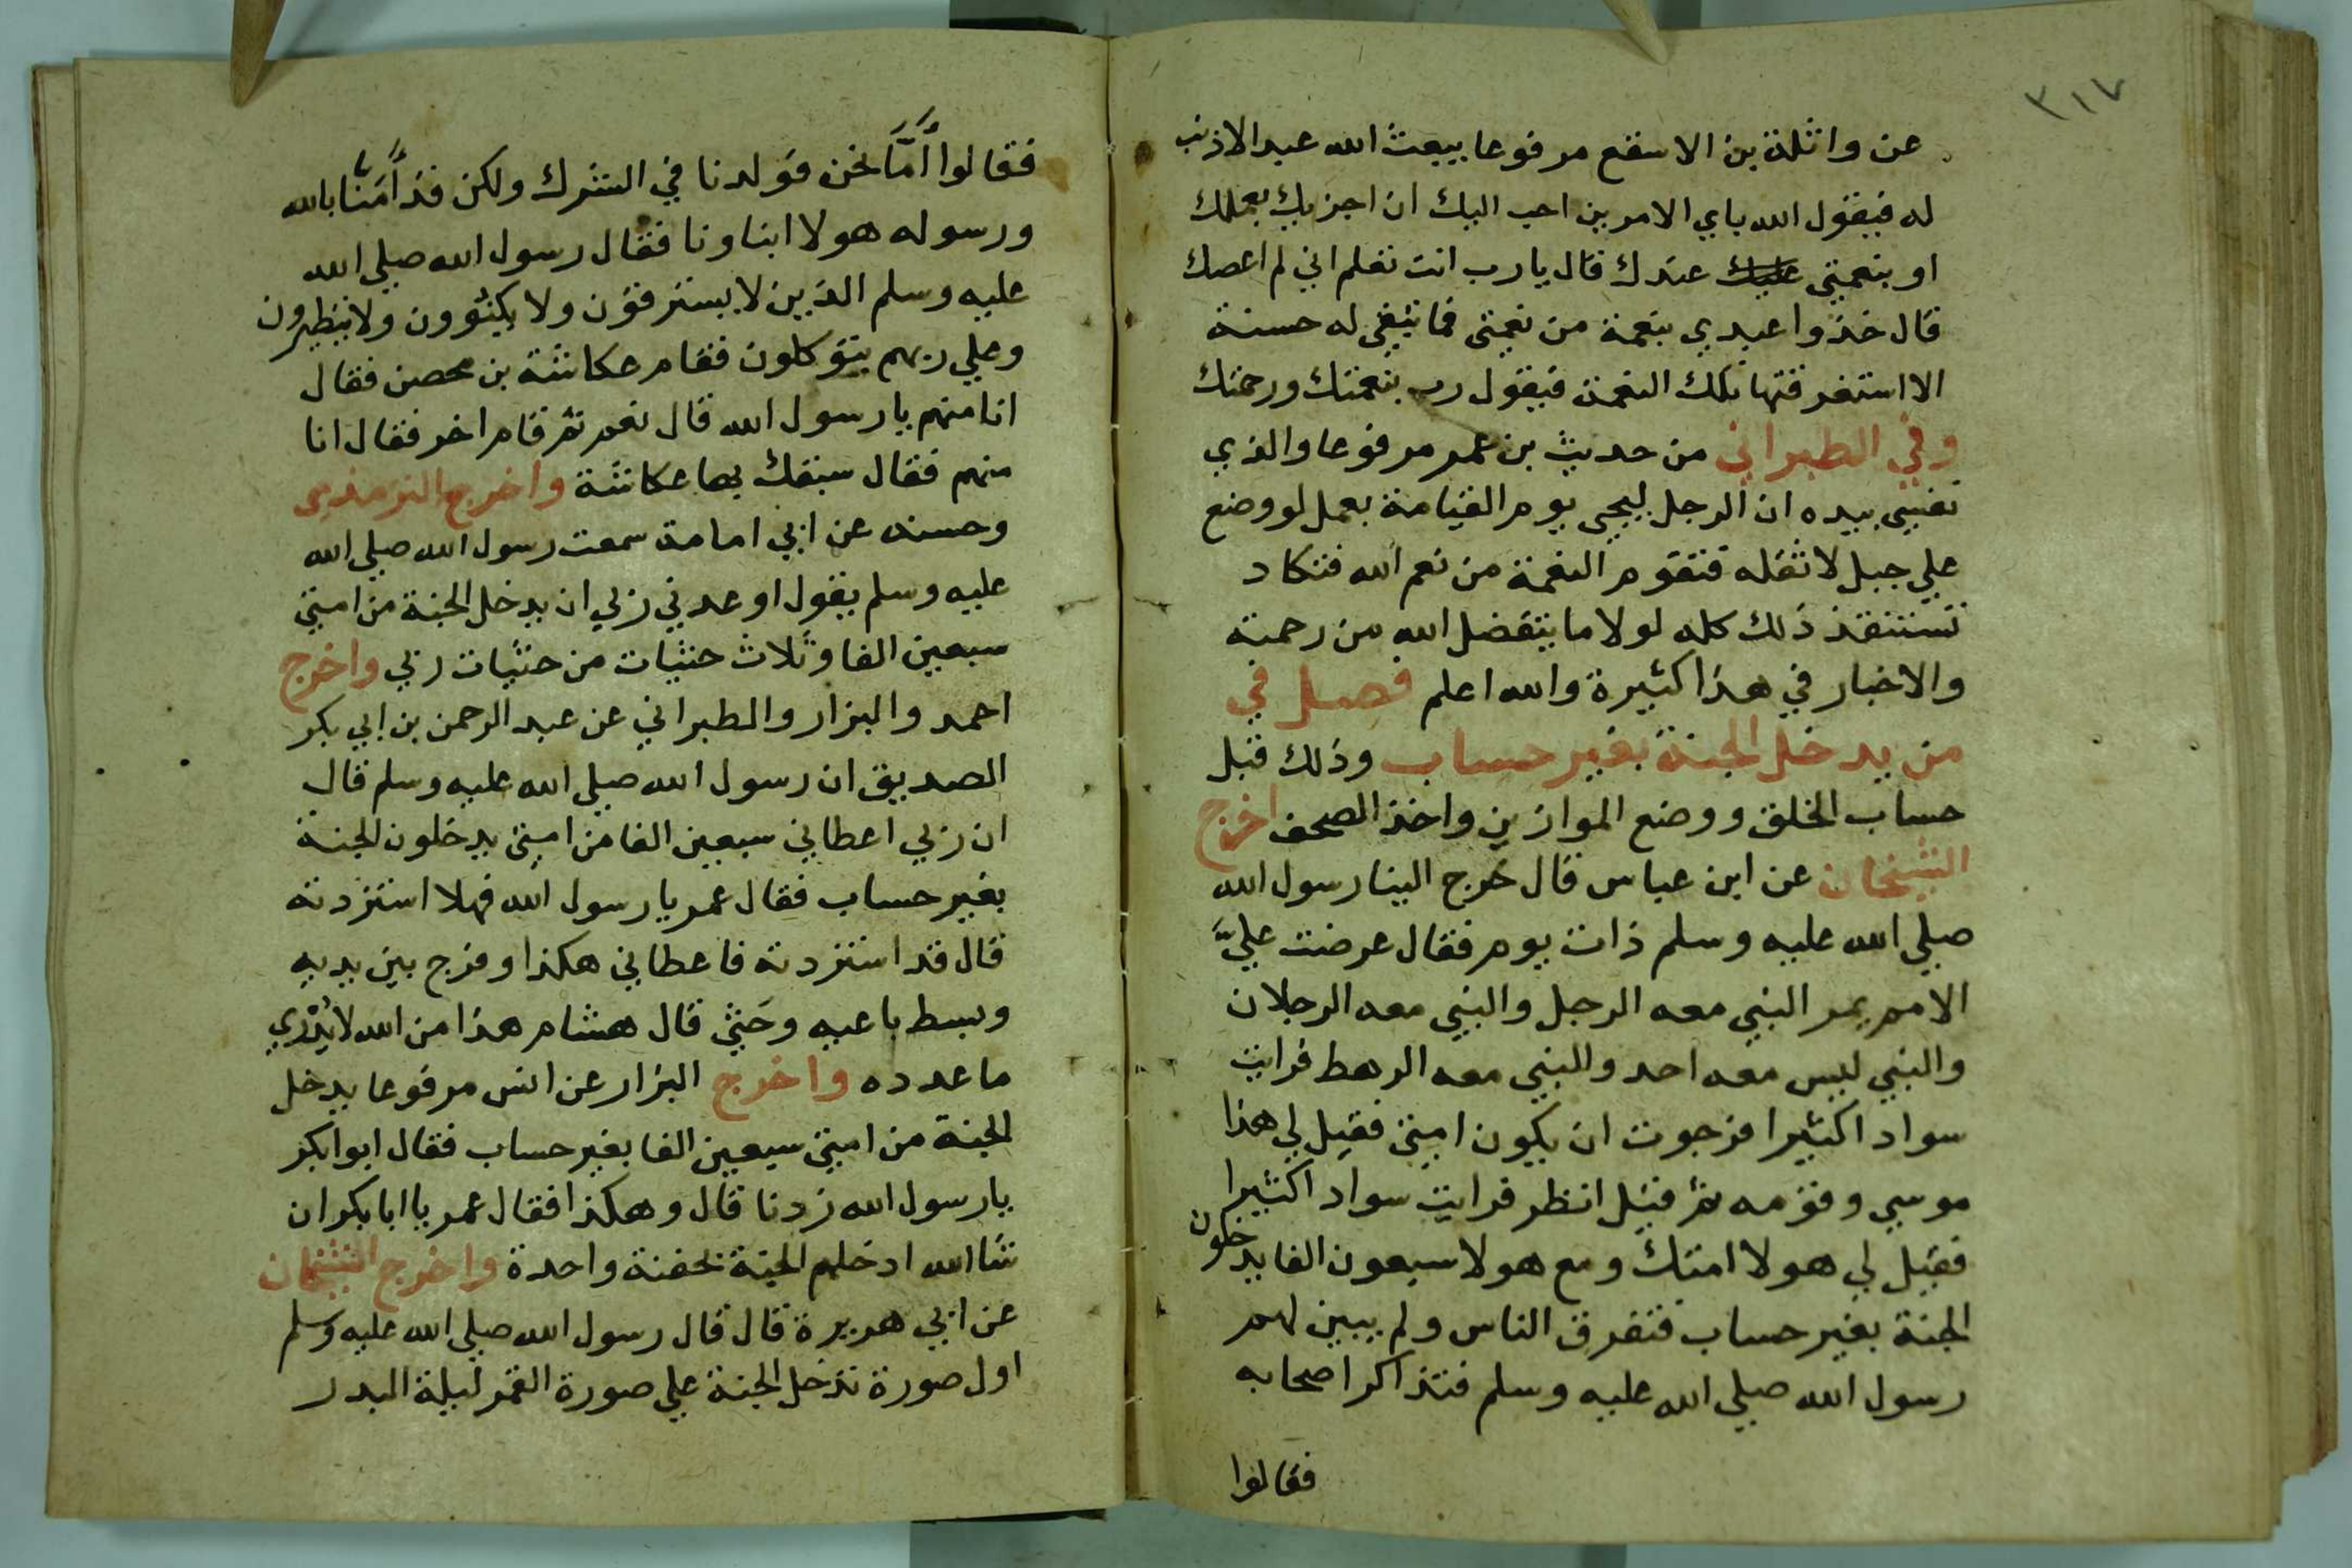 ٣١٧
عن واثلة بن الاسقع مرفوعا يبعث الله عبدا لا ذنب
له فيقول الله باي الامرين احب اليك ان اجزيك بعملك
او بنعمتي عليك عندك قال يا رب انت تعلم اني لم اعصك
قال خذوا عبدي بنعمة من نعمتي فما تبقي له حسنة
الا استغرقتها تلك النعمة فيقول رب بنعمتك ورحمتك
وفي الطبراني من حديث بن عمر مرفوعا والذي
نفسي بيده ان الرجل ليجي يوم القيامة بعمل لو وضع
علي جبل لاثقله فتقوم النعمة من نعم الله فتكاد
تستنفذ ذلك كله لولا ما يتفضل الله من رحمته
والاخبار في هذا كثيرة والله اعلم فصل في
من يدخل الجنة بغير حساب وذلك قبل
حساب الخلق ووضع الموازين واخذ الصحف اخرج
الشيخان عن ابن عباس قال خرج الينا رسول الله
صلي الله عليه وسلم ذات يوم فقال عرضت عليَّ
الامم يمر النبي معه الرجل والنبي معه الرجلان
والنبي ليس معه احد والنبي معه الرهط فرايت
سوادا كثيرا فرجوت ان يكون امتي فقيل لي هذا
موسي وقومه ثم قيل انظر فرايت سوادا كثيرا
فقيل لي هولا امتك ومع هولا سبعون الفا يدخلون
الجنة بغير حساب فتفرق الناس ولم يبين لهم
رسول الله صلي الله عليه وسلم فتذاكر اصحابه
فقالوا
فقالوا أمَّا نحن فولدنا في الشرك ولكن قد آمنا بالله
ورسوله هولا ابناونا فقال رسول الله صلي الله
عليه وسلم الذين لا يسترقون ولا يكتوون ولا يتطيرون
وعلي ربهم يتوكلون فقام عكاشة بن محصن فقال
انا منهم يا رسول الله قال نعم ثم قام اخر فقال انا
منهم فقال سبقك بها عكاشة واخرج الترمذي
وحسنه عن ابي امامة سمعت رسول الله صلي الله
عليه وسلم يقول اوعدني ربي ان يدخل الجنة من امتي
سبعين الفا وثلاث حثيات من حثيات ربي واخرج
احمد والبزار والطبراني عن عبد الرحمن بن ابي بكر
الصديق ان رسول الله صلي الله عليه وسلم قال
ان ربي اعطاني سبعين الفا من امتي يدخلون الجنة
بغير حساب فقال عمر يا رسول الله فهلا استزدته
قال قد استزدته فاعطاني هكذا وفرج بين يديه
وبسط باعيه وحَثي قال هشام هذا من الله لا يُدْري
ما عدده واخرج البزار عن انس مرفوعا يدخل
الجنة من امتي سبعين الفا بغير حساب فقال ابوابكر
يا رسول الله زدنا قال وهكذا فقال عمر يا ابا بكر ان
شا الله ادخلهم الجنة بحفنة واحدة واخرج الشيخان
عن ابي هريرة قال قال رسول الله صلي الله عليه وسلم
اول صورة تدخل الجنة علي صورة القمر ليلة البدر